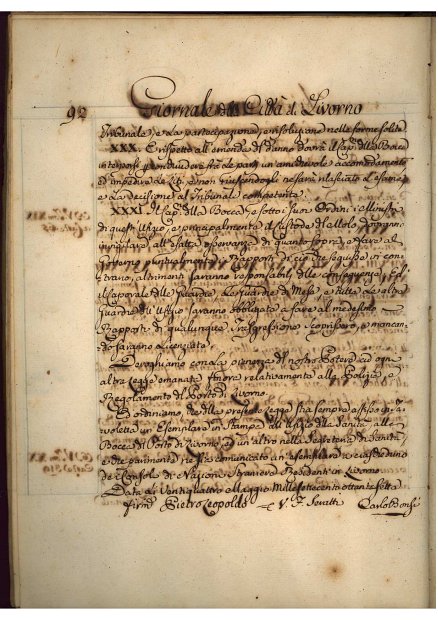 92 Giornale della Città di Livorno
Tribunale, e la partecipazione, e risoluzione nelle forme solite
XXX. E rispetto all'emenda di danno dovrà il Cap. della Bocca
interporsi per conciliare frà le parti un amichevole accomodamento
ed impedire le Liti, e non riuscendogli ne sarà rilasciato l'esame
e la decisione al Tribunale competente.
XXXI. Il Cap. della Bocca, e sotto i suoi Ordini i Ministri
di quest'Ufizio, e principalmente il Custode di Molo, dovranno
invigilare, all'esatta osservanza di quanto sopra, e fare al
Governo puntualmente i Rapporti di ciò che seguisse in con=
trario, altrimenti saranno responsabili delle conseguenze, ed
il Caporale delle Guardie, le Guardie di Molo, e tutte le altre
Guardie dell'Ufizio saranno obbligate a fare al medesimo
Rapporti di qualunque trasgressione, e mancan=
do saranno licenziate.
Deroghiamo con la pienezza del nostro Potere ad ogni
altra Legge emanata finora relativamente alla Polizia, e
Regolamento del Porto di Livorno.
Ed ordiniamo, che della presente Legge stia sempre affisso in Ta=
voletta un Esemplare in Stampa all'Ufizio della Sanità alla
Bocca del Porto di Livorno, ed un altro nella Segreteria di Sanità,
e che parimente ne sia comunicato un'esemplare a ciascheduno
de Consoli di Nazioni Straniere Residenti in Livorno
Data li Ventiquattro Maggio Millesettecento ottantasette
Firm. Pietro Leopoldo V. F. Seratti Carlo Bonsi